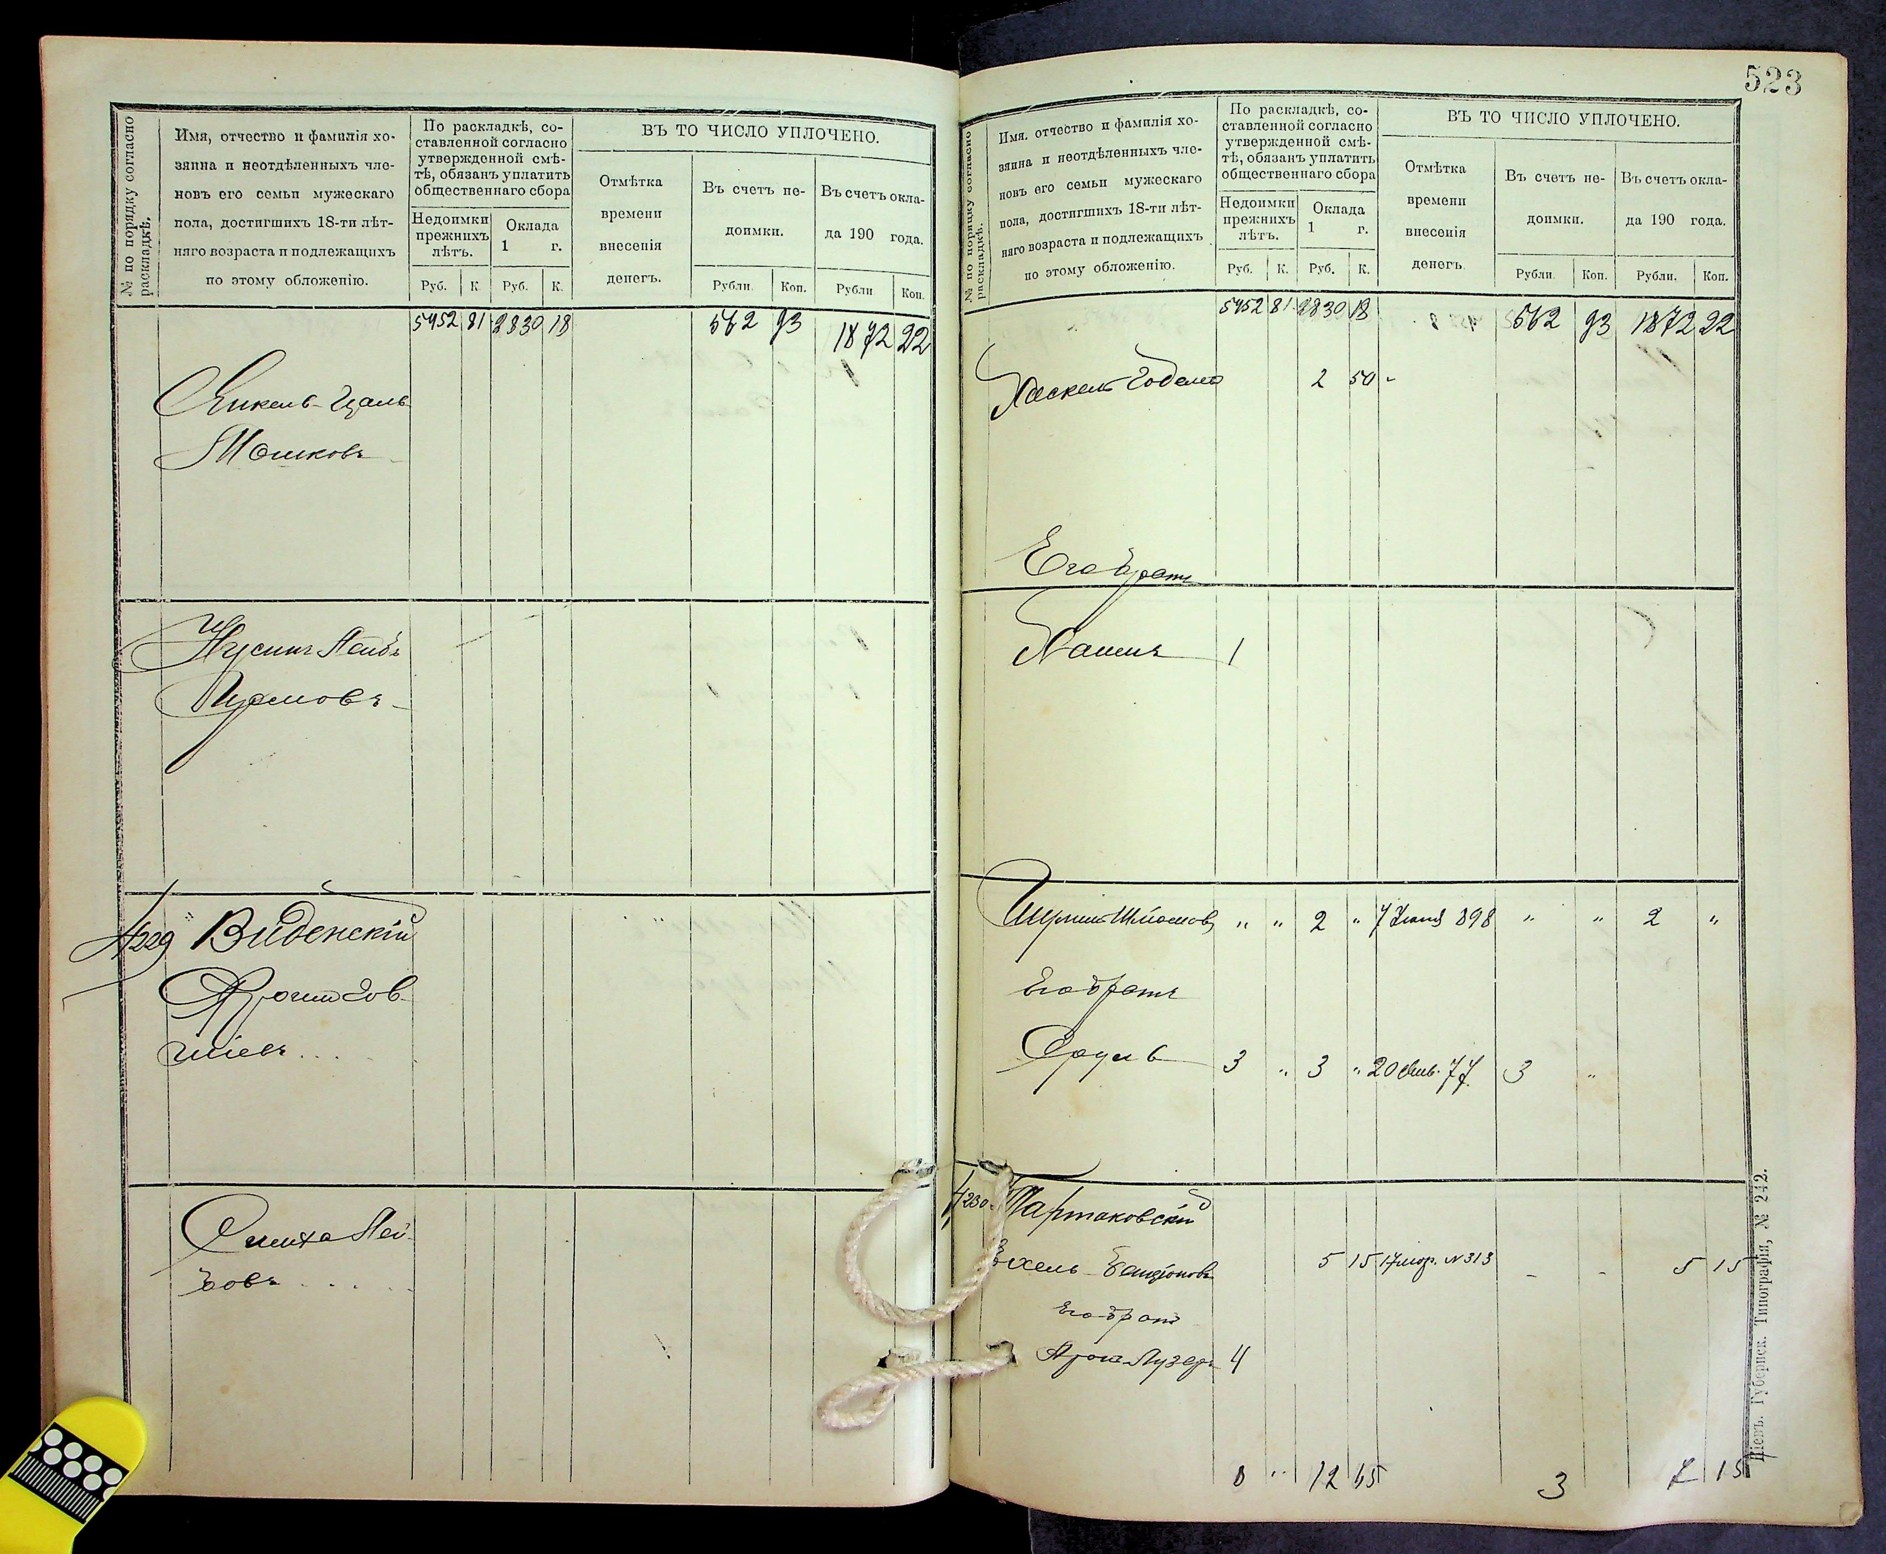 523
№ по порядку согласно
раскладкѣ.
Имя, отчество и фамилія хо-
зяина и неотдѣленныхъ чле-
новъ его семьи мужескаго
пола, достигшихъ 18-ти лѣт-
няго возраста и подлежащихъ
по этому обложенію.
По раскладкѣ, со-
ставленной согласно
утвержденной смѣ-
тѣ, обязанъ уплатить
общественнаго сбора
Недоимки
прежнихъ
лѣтъ.
Оклада
1 г.
Руб. К. Руб. К.
ВЪ ТО ЧИСЛО УПЛОЧЕНО.
Отмѣтка
времени
внесенія
денегъ.
Въ счетъ не-
доимки.
Въ счетъ окла-
да 190 года.
Рубли. Коп. Рубли Коп.
5452 81 2830 18 562 93 1872 22
Янкель-Цаль
Мошковъ
Нусинъ Лейбъ
4229 Виденскій
Симха Лей-
бовъ . . . . .
№ по порядку согласно
раскладкѣ.
Имя, отчество и фамилія хо-
зяина и неотдѣленныхъ чле-
новъ его семьи мужескаго
пола, достигшихъ 18-ти лѣт-
няго возраста и подлежащихъ
по этому обложенію.
По раскладкѣ, со-
ставленной согласно
утвержденной смѣ-
тѣ, обязанъ уплатить
общественнаго сбора
Недоимки
прежнихъ
лѣтъ.
Оклада
1 г.
Руб. К. Руб. К.
ВЪ ТО ЧИСЛО УПЛОЧЕНО.
Отмѣтка
времени
внесенія
денегъ.
Въ счетъ не-
доимки.
Въ счетъ окла-
да 190 года.
Рубли. Коп. Рубли. Коп.
5452 81 2830 18 562 93 1872 22
Хаскель 2 50
Его братъ
1
„ „ 2 „ 898 „ „ 2 „
Его братъ
Сруль 3 „ 3 „ 20 77 3 „
4230 Тартаковскій
5 15 17 мар. № 313 - - 5 15
Его братъ
Арон Лузеръ 4
8 „ 12 65 3 7 15
Кіевъ. Губернск. Типографія, № 242.